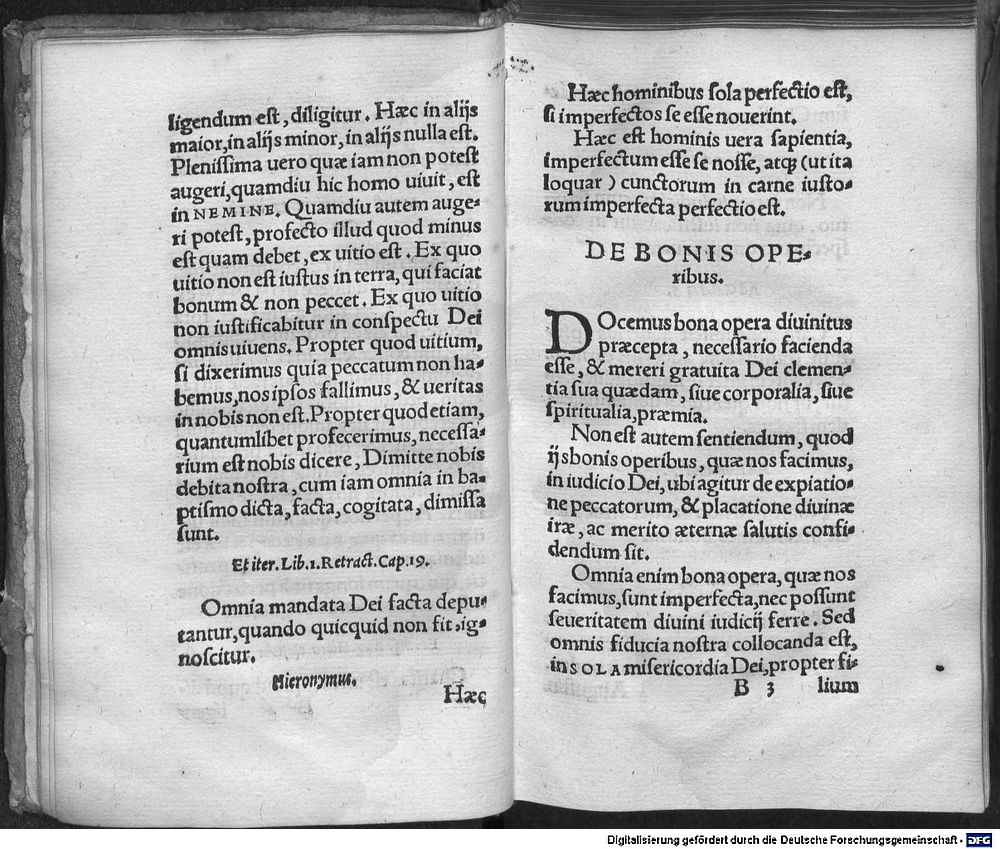 ligendum est, diligitur. Hæc in alijs
maior, in alijs minor, in alijs nulla est.
Plenissima uero quæ iam non potest
augeri, quamdiu hic homo uiuit, est
in NEMINE. Quamdiu autem auge-
ri potest, profecto illud quod minus
est quam debet, ex uitio est. Ex quo
uitio non est iustus in terra, qui faciat
bonum & non peccet. Ex quo uitio
non iustificabitur in conspectu Dei
omnis uiuens. Propter quod uitium,
si dixerimus quia peccatum non ha-
bemus, nos ipsos fallimus, & ueritas
in nobis non est. Propter quod etiam,
quantumlibet profecerimus, necessa-
rium est nobis dicere, Dimitte nobis
debita nostra, cum iam omnia in ba-
ptismo dicta, facta, cogitata, dimissa
sunt.
Et iter. Lib. 1. Retract. Cap. 19.
Omnia mandata Dei facta depu-
tantur, quando quicquid non fit, ig-
noscitur.
Hieronymus.
Hæc
Hæc hominibus sola perfectio est,
si imperfectos se esse nouerint.
Hæc est hominis uera sapientia,
imperfectum esse se nosse, atq; (ut ita
loquar) cunctorum in carne iusto-
rum imperfecta perfectio est.
DE BONIS OPE-
ribus.
DOcemus bona opera diuinitus
præcepta, necessario facienda
esse, & mereri gratuita Dei clemen-
tia sua quædam, siue corporalia, siue
spiritualia, præmia.
Non est autem sentiendum, quod
ijs bonis operibus, quæ nos facimus,
in iudicio Dei, ubi agitur de expiatio-
ne peccatorum, & placatione diuinæ
iræ, ac merito æternæ salutis confi-
dendum sit.
Omnia enim bona opera, quæ nos
facimus, sunt imperfecta, nec possunt
seueritatem diuini iudicij ferre. Sed
omnis fiducia nostra collocanda est,
in SOLA misericordia Dei, propter fi-
B 3 lium
Digitalisierung gefördert durch die Deutsche Forschungsgemeinschaft - DFG